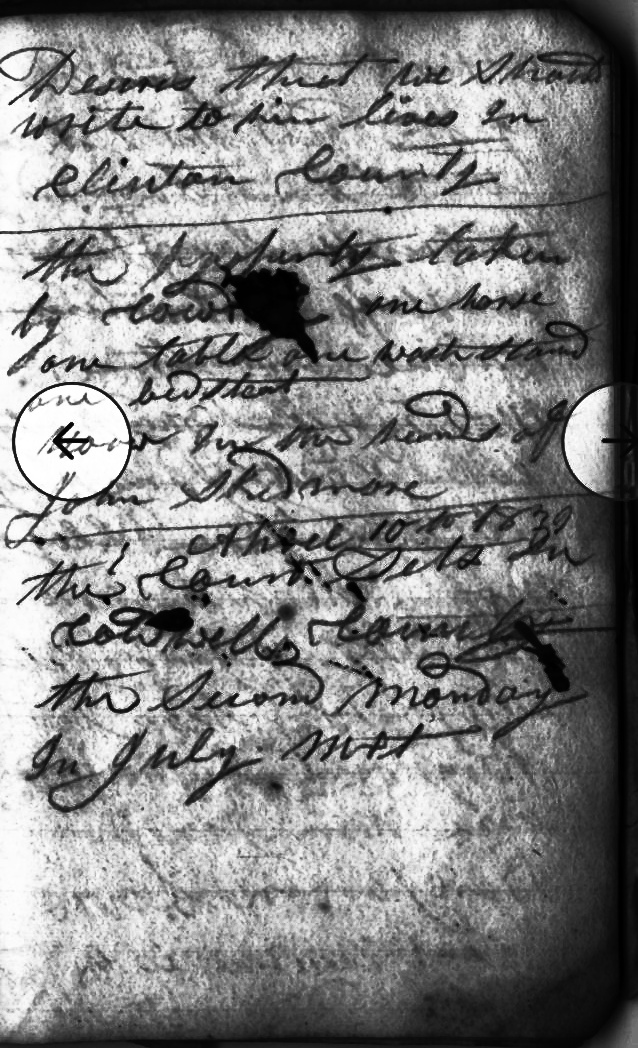 Desires that we Should
write to him lives in
Clinton County
the property taken
by one horse
one table one wash stand
one bedsteat
now In the hands of
John Skidmore
April 10th 1839
the Court Sets in
Coldwell County
the Second Monday
In July next